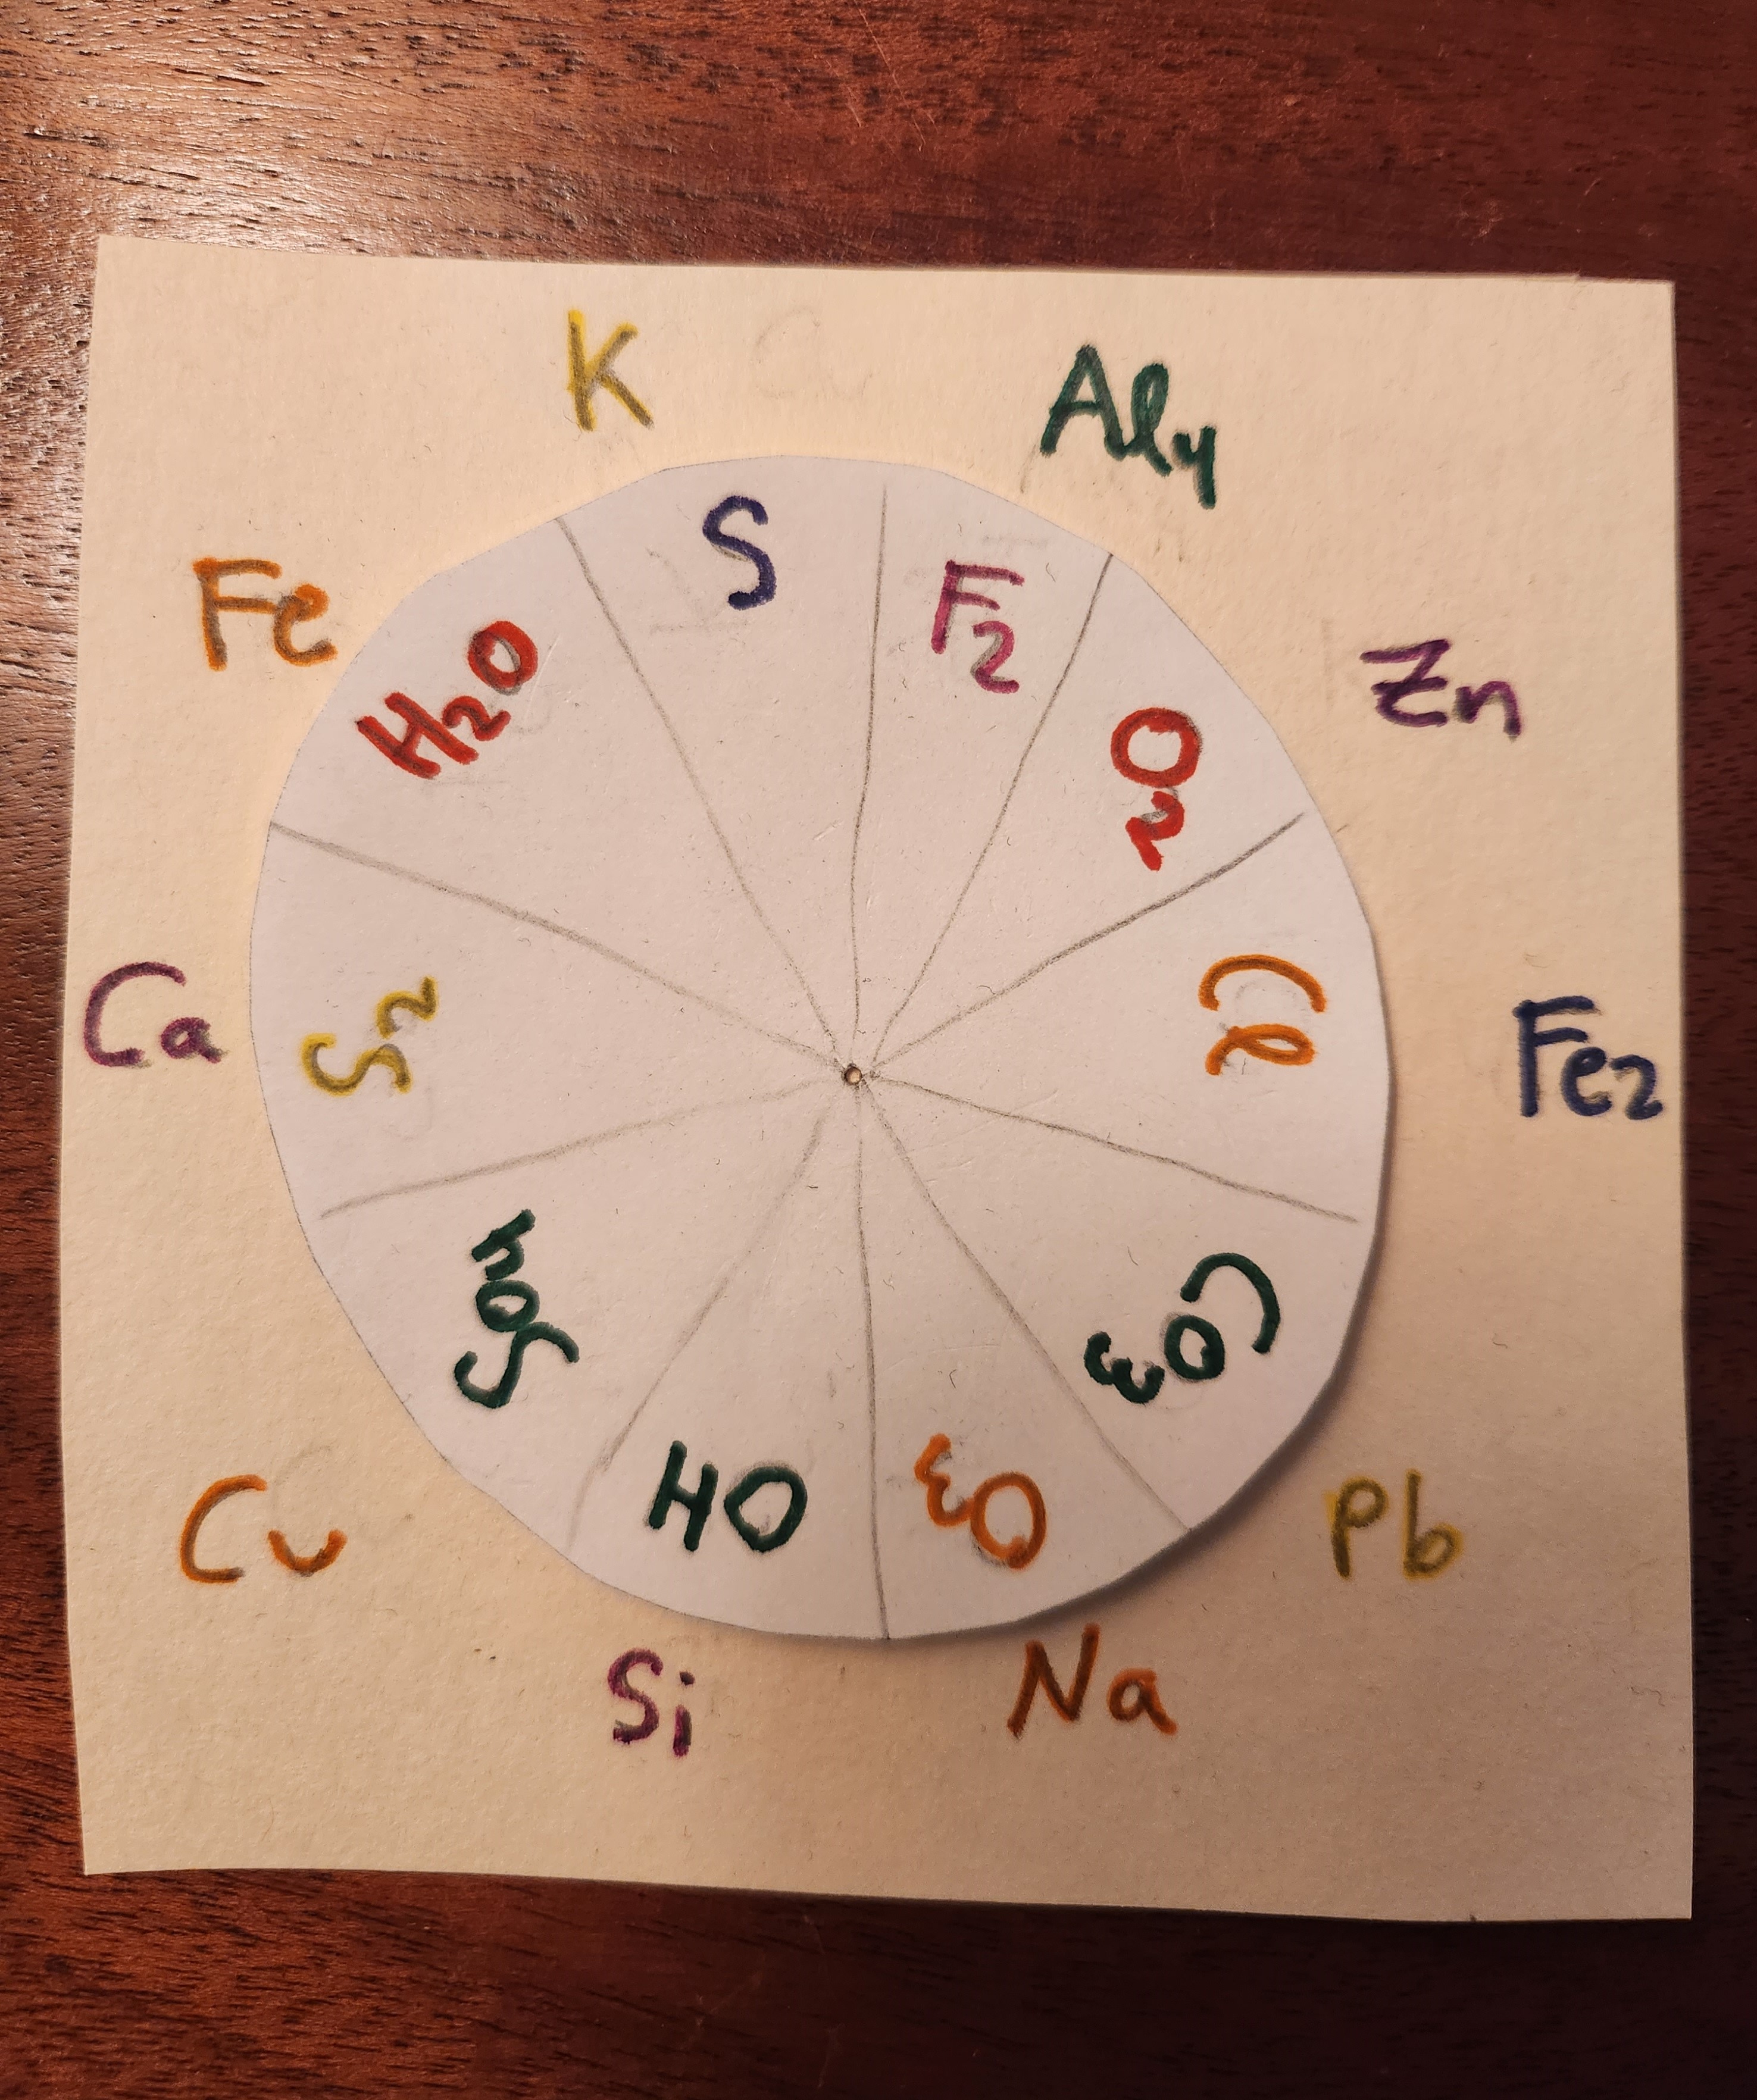 K
Al4
Zn
Fe2
Pb
Na
Si
Cu
Ca
Fe
S
F2
O2
Cl
CO3
O3
OH
SO4
S2
H2O